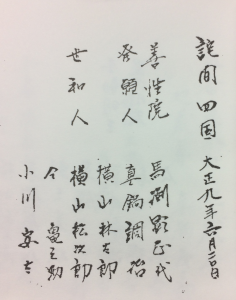 詫間 四国 大正九年六月二日
善性院 馬渕顕正代
発願人 真鍋調治
横山林太郎
世和人 横山松次郎
仝 亀三助
小川 安吉